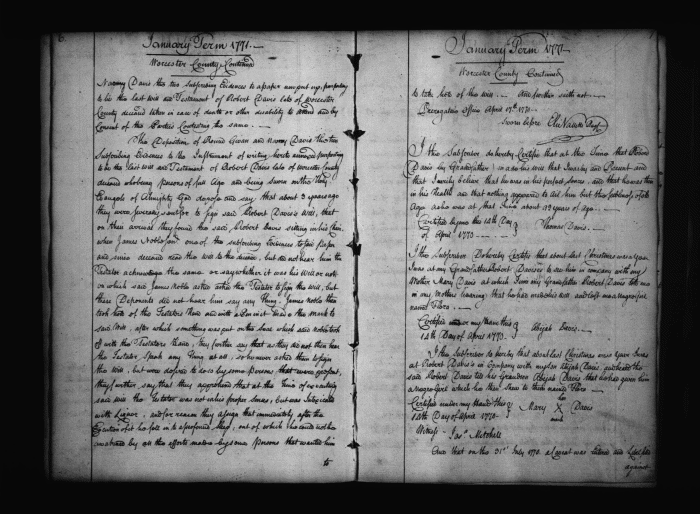 January Term 1771.
Worcester County Continued
Nanny Davis the two Subscribing Evidences to a paper annexed purporting
to be the last will and Testament of Robert Davis late of Worcester
County deceased taken in case of death or other disability to attend and by
Consent of the Parties Contesting the same
The Deposition of and Nanny Davis the two
Subscribing Evidences to the Instrument of writing hereto annexed purporting
to be the last will and Testament of Robert Davis late of Worcester County
deceased who being persons of full Age and being sworn on the Holy
Evangels of Almighty God depose and say that about 3 years ago
they were severally sent for to Sign said Robert Davis's Will, that
on their arrival they found the said Robert Davis sitting in his
when James Noble one of the subscribing Evidences to said paper
and since deceased read the will to the but did not hear him the
Testator acknowledge the same or say whether it was his will or not
on which said James Noble asked the Testator to Sign the Will, but
these Deponents did not hear him say any thing. James Noble then
took hold of the Testators Hand and with a Pen in it made a Mark to
said Will, after which something was put on the which said Noble took
off with the Testators they further say that as they did not then hear
the Testator Speak any thing at all, so however asked them to Sign
the Will, but were desired to do so by some persons that were present,
they further say, that they apprehend that at the time of executing
said will the Testator was not in his proper Senses, but was Intoxicated
with Liquor, and for reason they assign that immediately after the
Execution of it he fell into a profound Sleep, out of which he could not be
awakened by all the efforts made by some Persons that wanted him
to
January Term 1771.
Worcester County Continued
to take hold of the will And further saith not
Prerogative Office April 17th 1770.
Sworn before
I the Subscriber do hereby Certify that at this Time that Robert
Davis my Grandfather his will that I was by and Present and
that I verily believe that he was in his perfect Senses, and that he was then
in his Health and that nothing appeared to ail him but the of old
Age and he was at that Time about years of age
Certified by me this 14th Day
of April 1770
Thomas Davis.
I the Subscriber Do hereby Certify that about last Christmas was a year
I was at my Grandfather Robert Davis's to see him in company with my
Mother Mary Davis at which Time my Grandfather Robert Davis told me
in my Mothers hearing that he had made his Will, and left me a negro girl
named Flora
Certified under my Hand this
14th Day of April 1770.
Abijah Davis.
I the Subscriber do hereby that about last Christmas was a year I was
at Robert Davis's in Company with my Son Abijah Davis, and heard the
said Robert Davis tell his Grandson Abijah Davis that he had given him
a Negro Girl which he then to him named Flora
Certified under my Hand this
14th Day of April 1770
her
Mary X Davis
mark
Witness Jas. Mitchell
And that on this 31st July 1770 Appeal was Entered and
against